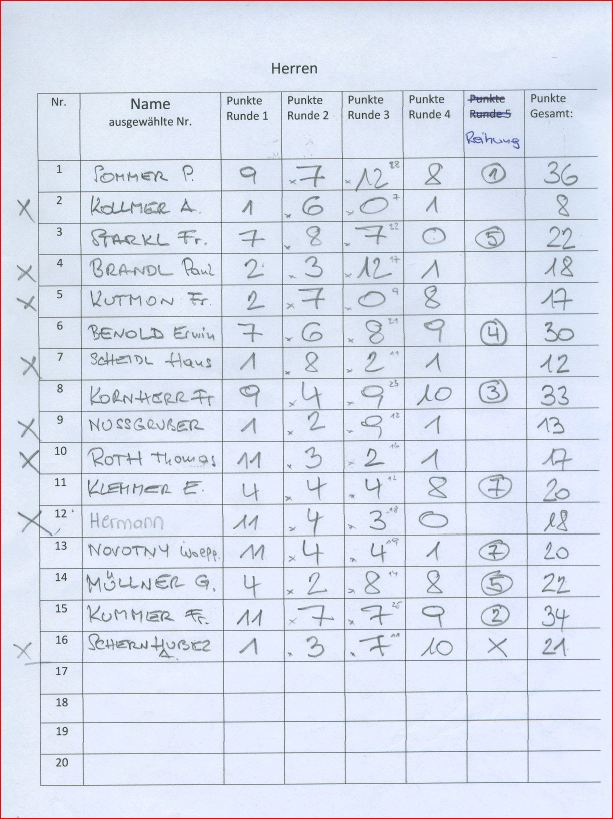 Herren
Nr. Name ausgewählte Nr. Punkte Runde 1 Punkte Runde 2 Punkte Runde 3 Punkte Runde 4 Punkte Runde 5 Reihung Punkte Gesamt:
1 SOMMER P. 9 x 7 x 12 28 8 1 36
X 2 KOLLMER A. 1 x 6 x 0 7 1 8
3 STARKL Fr. 7 x 8 x 7 22 0 5 22
X 4 BRANDL Paul 2 x 3 x 12 17 1 18
X 5 KUTMON Fr. 2 x 7 x 0 9 8 17
6 BENOLD Erwin 7 x 6 x 8 21 9 4 30
X 7 SCHEIDL Hans 1 x 8 x 2 11 1 12
8 KORNHERR Fr 9 x 4 x 9 10 3 33
X 9 NUSSGRUBER 1 x 2 x 9 12 1 13
X 10 ROTH Thomas 11 x 3 x 2 16 1 17
11 KLEMMER E. 4 x 4 x 4 12 8 7 20
X 12 Hermann 11 x 4 x 3 18 0 18
13 NOVOTNY 11 x 4 x 4 19 1 7 20
14 MÜLLNER G. 4 x 2 x 8 14 8 5 22
15 KUMMER Fr. 11 x 7 x 7 25 9 2 34
X 16 SCHERNHUBER 1 x 3 x 7 11 10 X 21
17
18
19
20